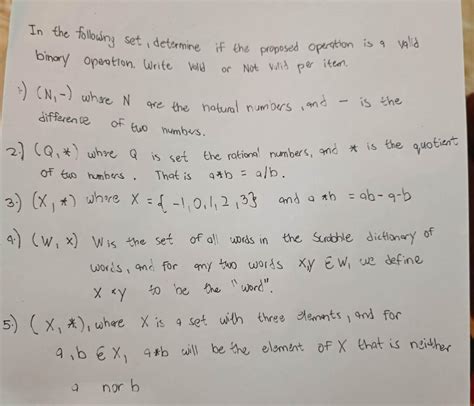 In the following set, determine if the proposed operation is a valid
binary operation. Write Valid or Not Valid per item.
1.) (N,-) where N are the natural numbers, and - is the
difference of two numbers.
2.) (Q,*) where Q is set the rational numbers, and * is the quotient
of two numbers. That is a*b = a/b.
3.) (X,*) where X = {-1,0,1,2,3} and a*b = ab-a-b
4.) (W,x) W is the set of all words in the Scrabble dictionary of
words, and for any two words x,y ∈ W, we define
x * y to be the "word".
5.) (X,*), where X is a set with three elements, and for
a,b ∈ X, a*b will be the element of X that is neither
a nor b